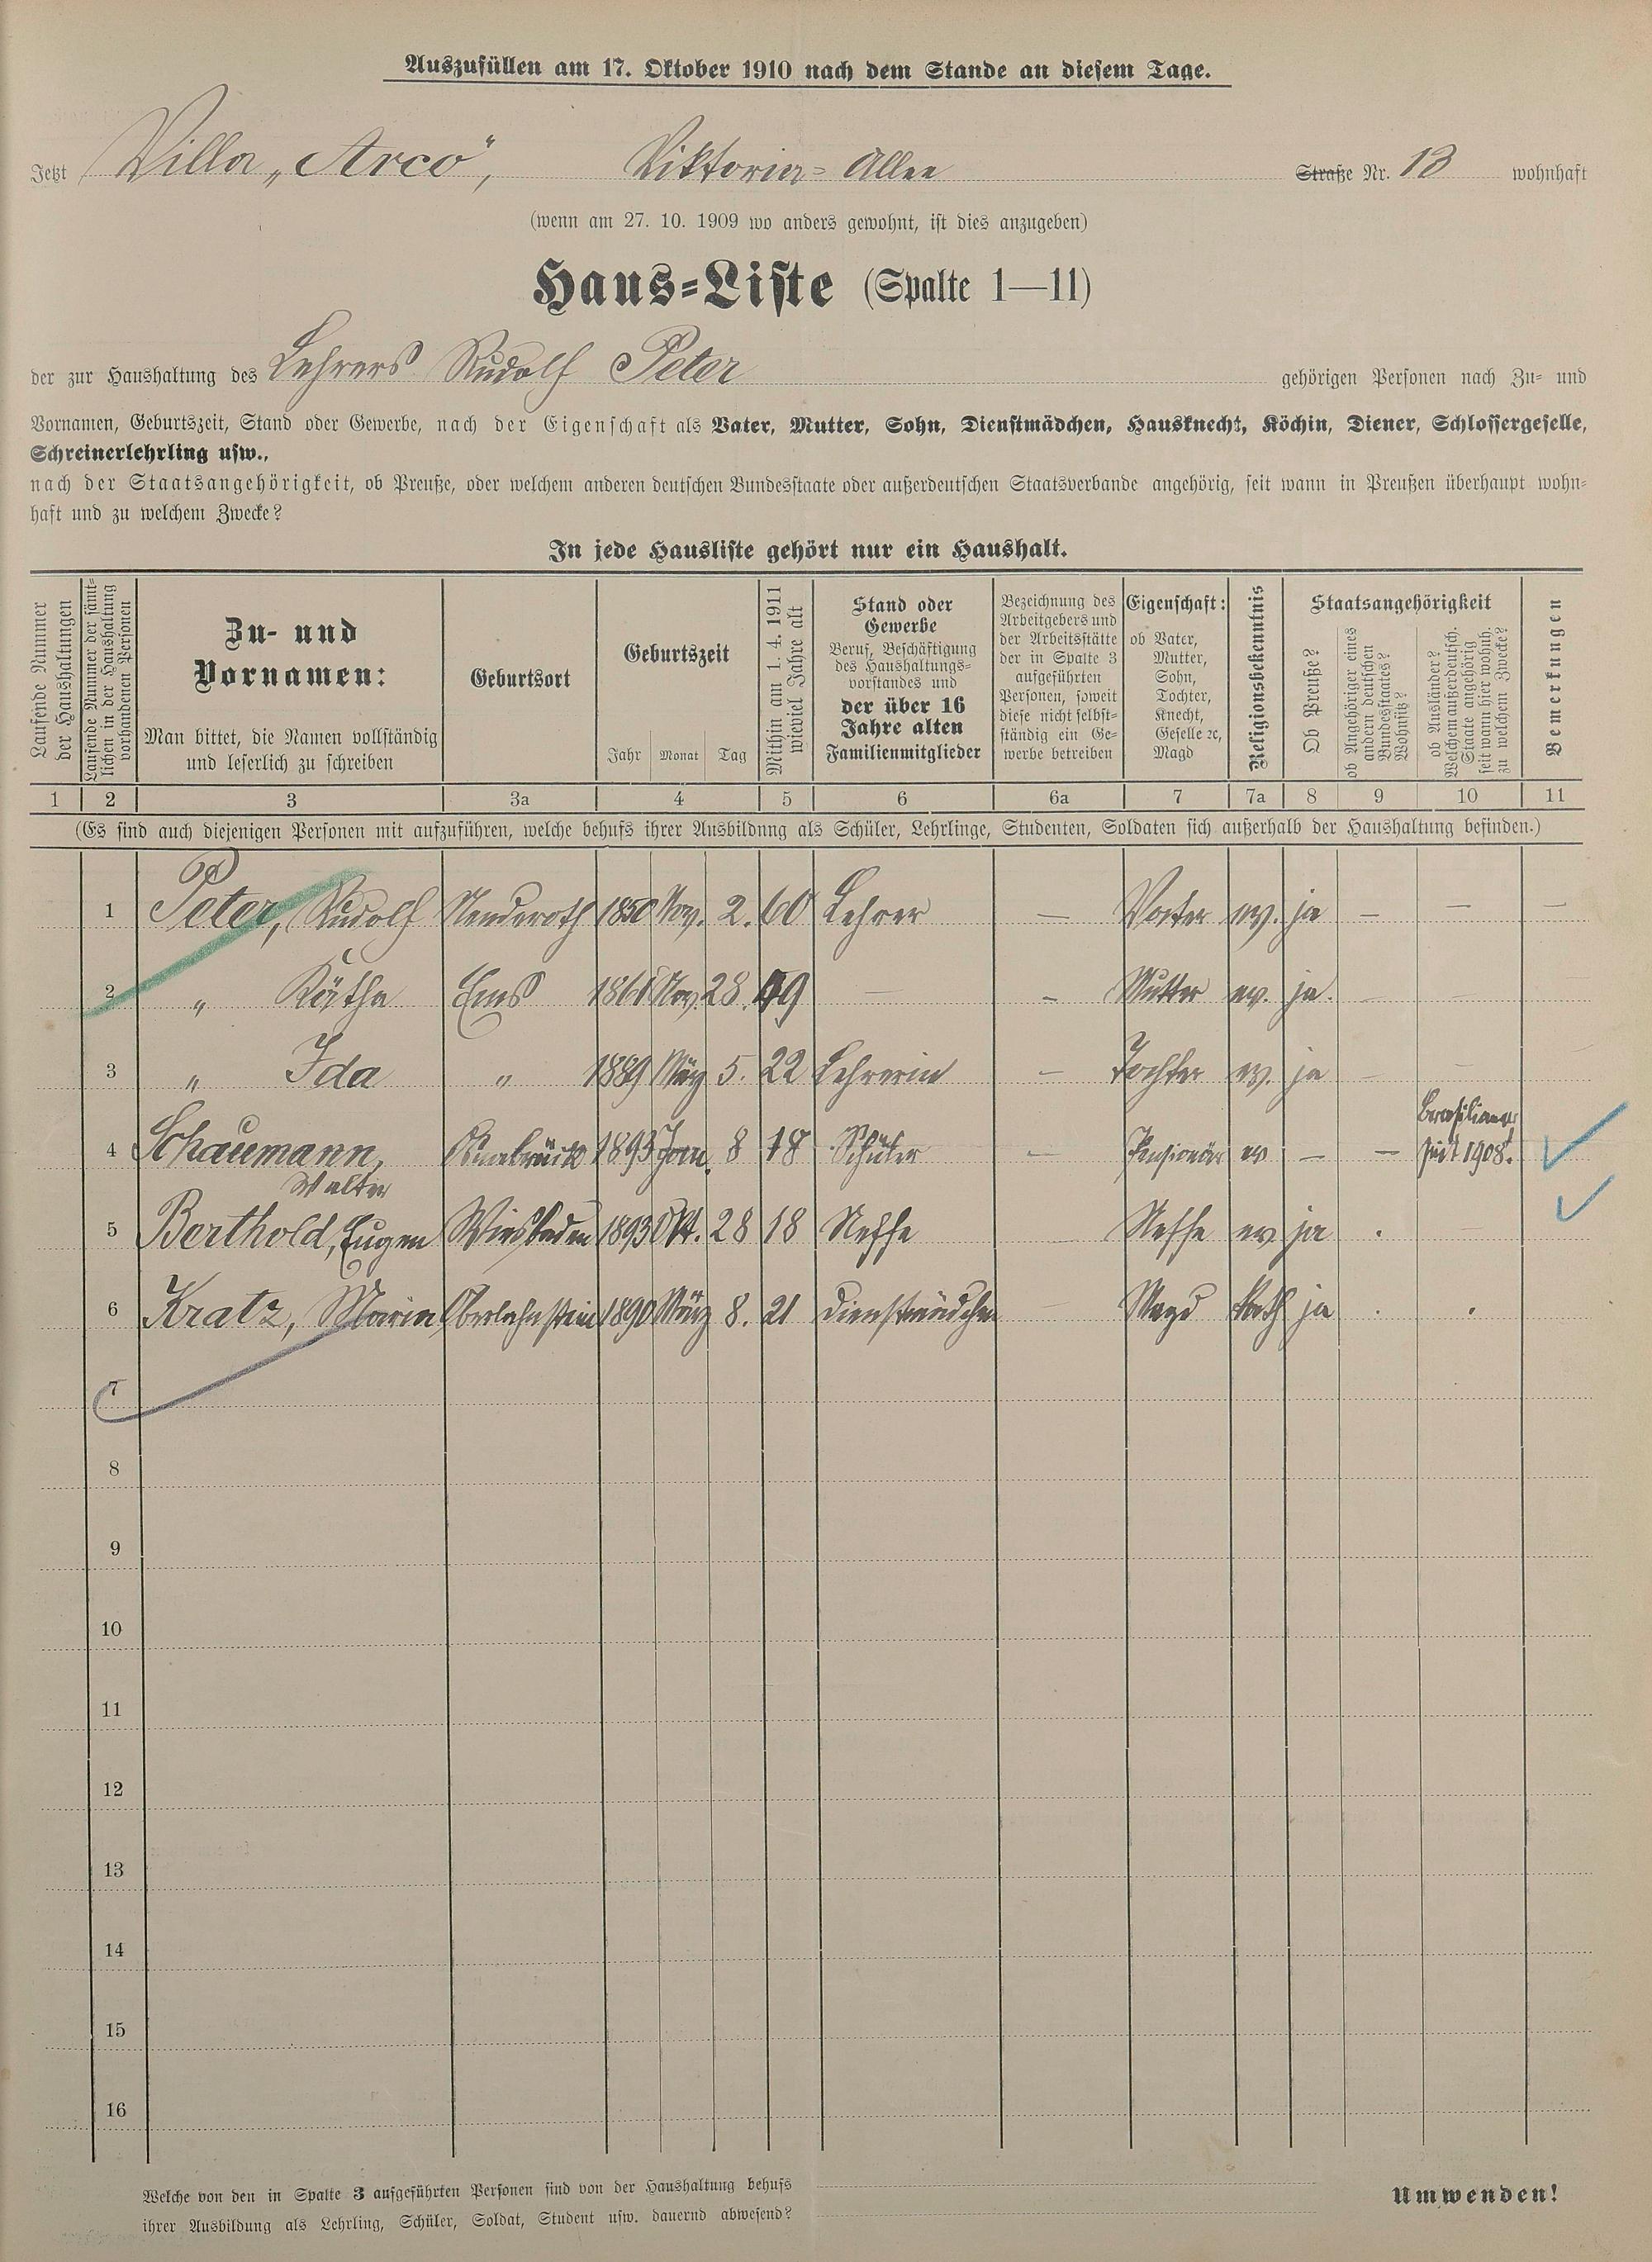 Auszufüllen am 17. Oktober 1910 nach dem Stande an diesem Tage.
Jetzt Villa „Arco“, Viktoria-Allee Straße Nr. 13 wohnhaft
(wenn am 27. 10. 1909 wo anders gewohnt, ist dies anzugeben)
Haus-Liste (Spalte 1—11)
der zur Haushaltung des Lehrers Rudolf Peter gehörigen Personen nach Zu- und
Vornamen, Geburtszeit, Stand oder Gewerbe, nach der Eigenschaft als Vater, Mutter, Sohn, Dienstmädchen, Hausknecht, Köchin, Diener, Schlossergeselle,
Schreinerlehrling usw.,
nach der Staatsangehörigkeit, ob Preuße, oder welchem anderen deutschen Bundesstaate oder außerdeutschen Staatsverbande angehörig, seit wann in Preußen überhaupt wohn-
haft und zu welchem Zwecke?
In jede Hausliste gehört nur ein Haushalt.
Laufende Nummer
der Haushaltungen
Laufende Nummer der sämt-
lichen in der Haushaltung
vorhandenen Personen
Zu- und
Vornamen:
Man bittet, die Namen vollständig
und leserlich zu schreiben
Geburtsort
Geburtszeit
Jahr Monat Tag
Mithin am 1. 4. 1911
wieviel Jahre alt
Stand oder
Gewerbe
Beruf, Beschäftigung
des Haushaltungs-
vorstandes und
der über 16
Jahre alten
Familienmitglieder
Bezeichnung des
Arbeitgebers und
der Arbeitsstätte
der in Spalte 3
aufgeführten
Personen, soweit
diese nicht selbst-
ständig ein Ge-
werbe betreiben
Eigenschaft:
ob Vater,
Mutter,
Sohn,
Tochter,
Knecht,
Geselle ꝛc,
Magd
Religionsbekenntnis
Staatsangehörigkeit
Ob Preuße?
ob Angehöriger eines
andern deutschen
Bundesstaates?
Wohnsitz?
ob Ausländer?
Welchem außerdeutsch.
Staate angehörig
seit wann hier wohnh.
zu welchem Zwecke?
Bemerkungen
1 2 3 3a 4 5 6 6a 7 7a 8 9 10 11
(Es sind auch diejenigen Personen mit aufzuführen, welche behufs ihrer Ausbildung als Schüler, Lehrlinge, Studenten, Soldaten sich außerhalb der Haushaltung befinden.)
1 Peter, Rudolf Nenderoth 1850 Nov. 2. 60 Lehrer — Vater ev. ja — — —
2 „ Käthe Ems 1861 Nov. 28. 49 — - Mutter ev. ja. —
3 „ Ida „ 1889 März 5. 22 Lehrerin — Tochter ev. ja —
Brasilianer,
4 Schaumann, Osnabrück 1893 Jan. 8 18 Schüler — Pensionär ev — — seit 1908.
Walter
5 Berthold, Eugen Wiesbaden 1893 Okt. 28 18 Neffe Neffe ev ja .
6 Kratz, Maria Oberlahnstein 1890 März 8. 21 Dienstmädchen Magd kath ja . .
7
8
9
10
11
12
13
14
15
16
Welche von den in Spalte 3 aufgeführten Personen sind von der Haushaltung behufs
ihrer Ausbildung als Lehrling, Schüler, Soldat, Student usw. dauernd abwesend?
Umwenden!